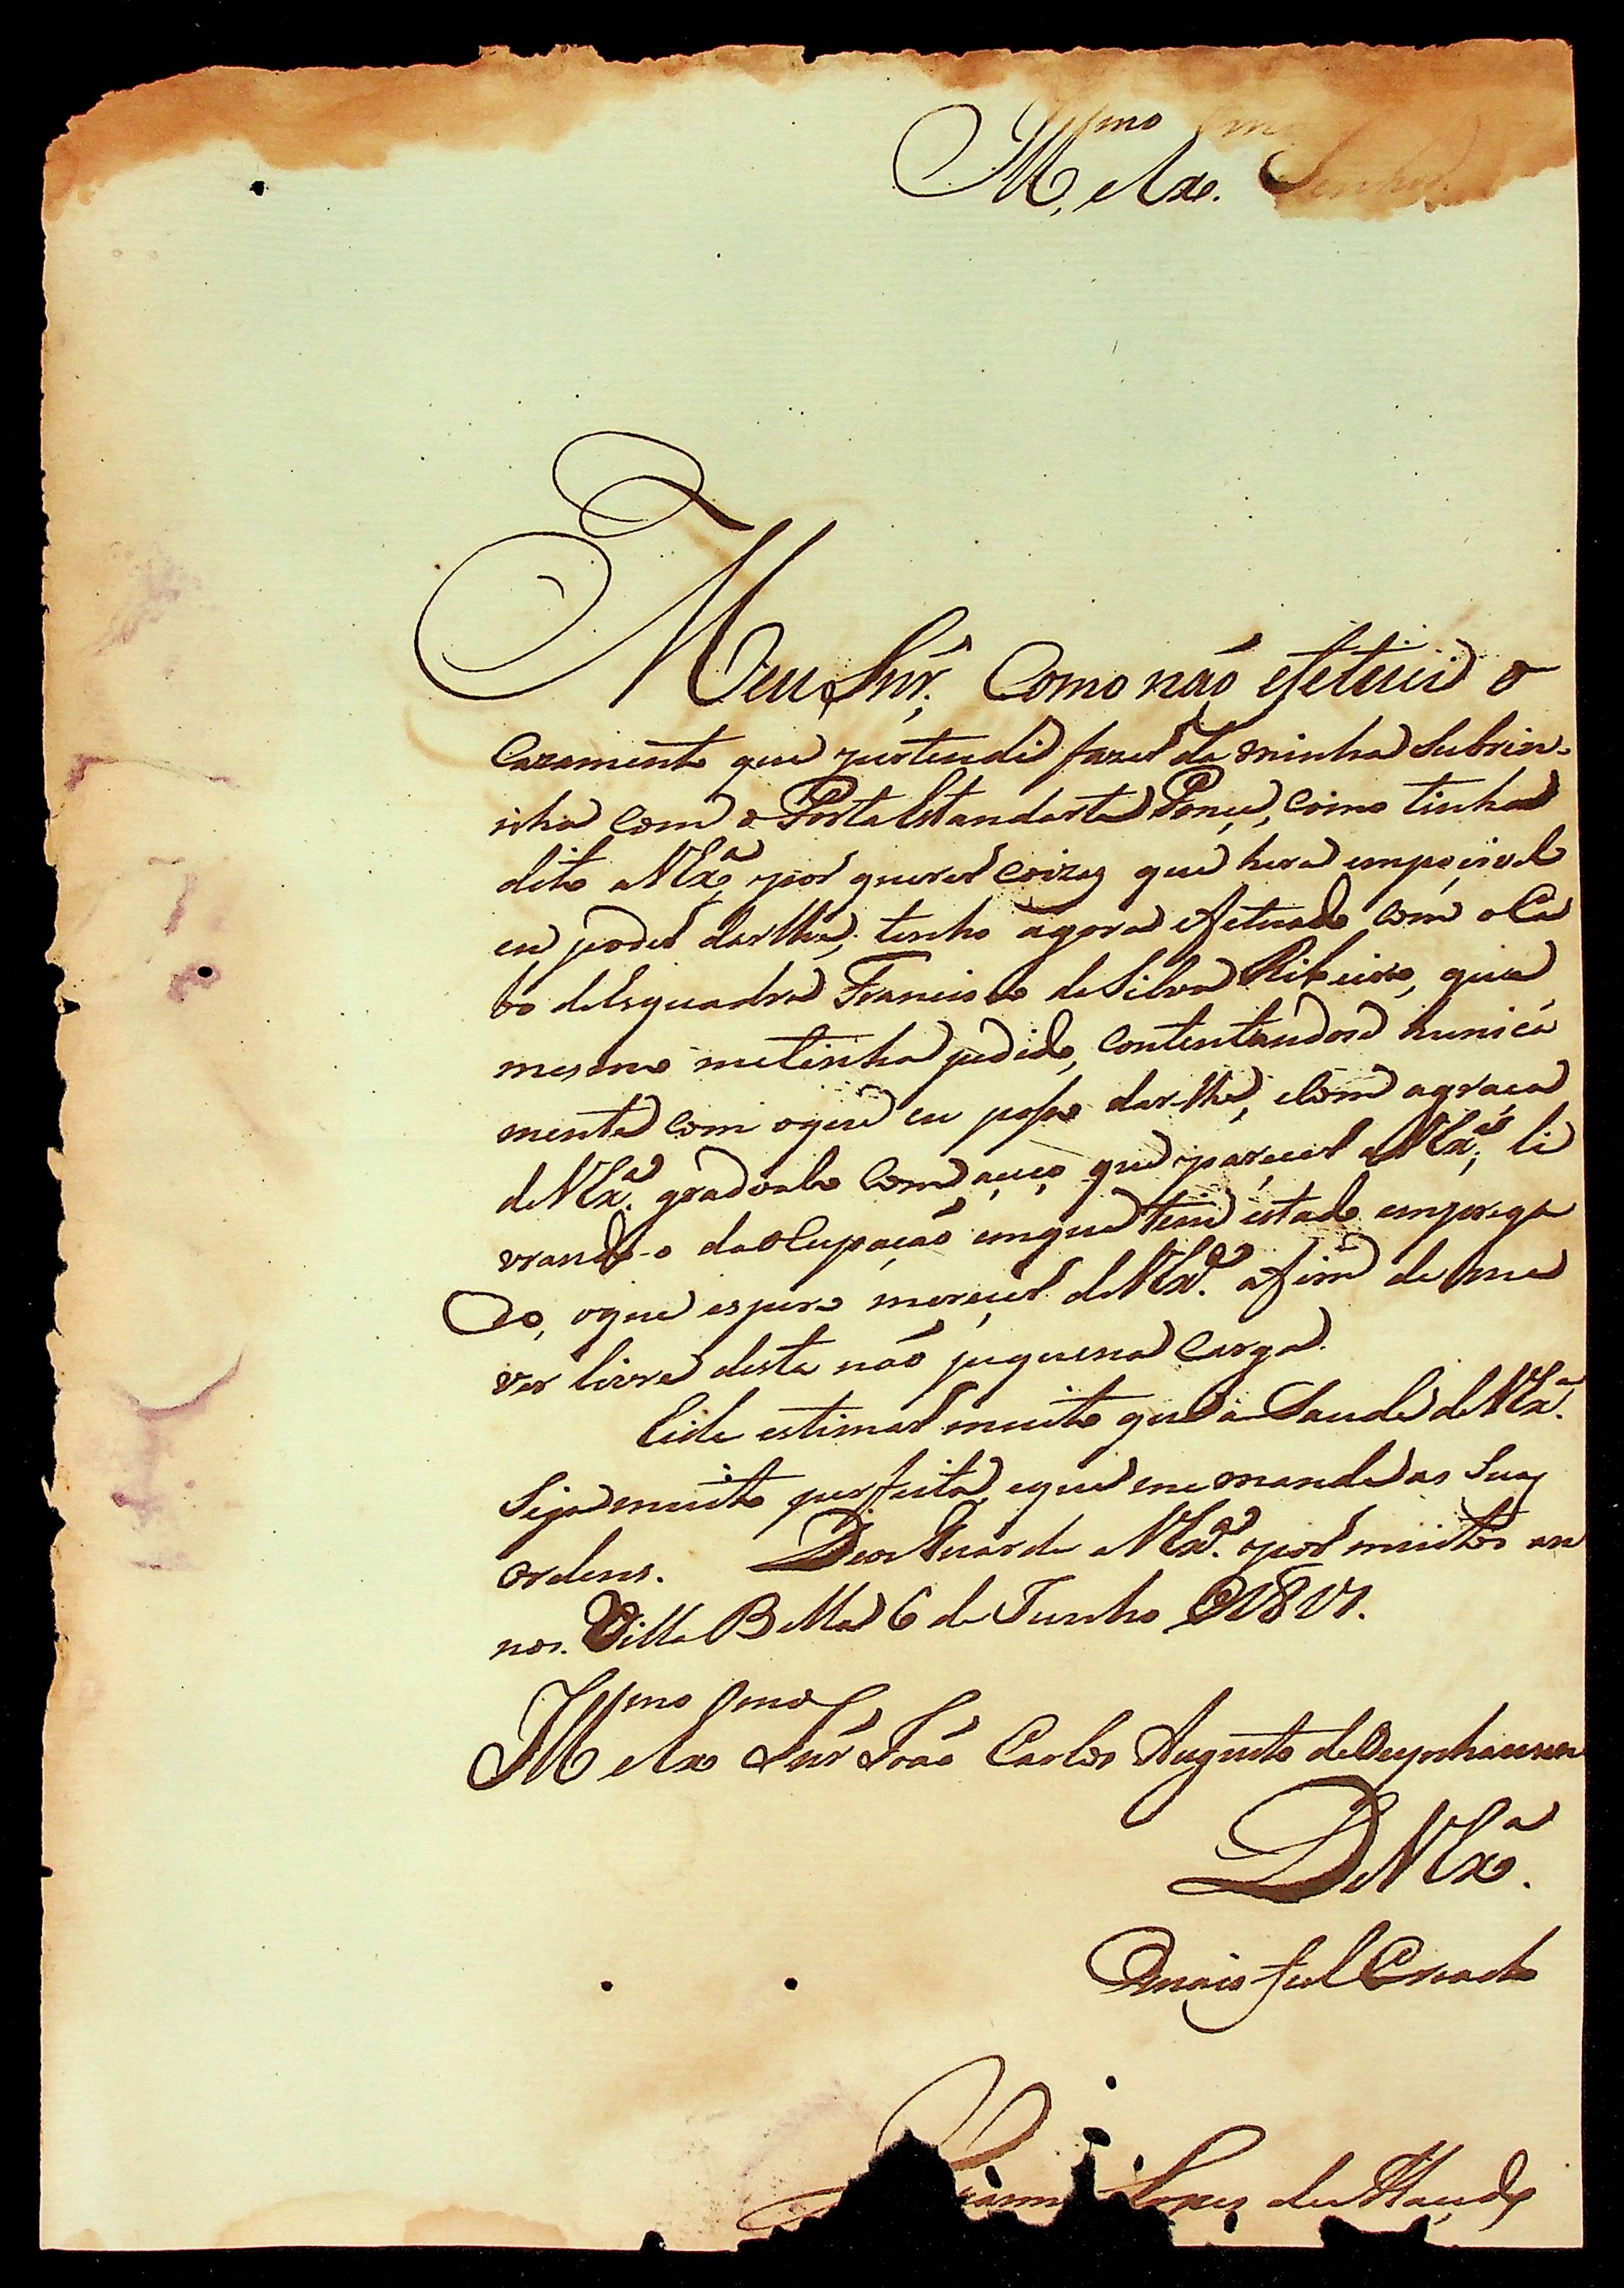 Ill.mo e Ex.mo Senhor
Meu Snr. Como não efetuei o
Cazamento que pertendi fazer da minha Subrin-
nha com o Porta Estandarte Ponçe, como tinha
dito a V Ex.a, por querer coizas que hera empocivel
eu poder darlhe; tenho agora efetuado com o Ca
bo de Esquadra Francisco da Silva Ribeiro, que a
mesmo me tinha pedido, contentandose hunica
mente com o que eu posso dar-lhe, e com a graca
de V Ex.a gradoalo com aquo que pareçer a V Ex.a, li
vrando-o da oCupação em que tem estado emprega
do, o que espero mereçer de V Ex.a afim de me
ver livre desta não pequena Carga.
Eide estimar muito que a Saude de V Ex.a
Siga muito perfeita, e que me mande as Suas
ordens. Deos Guarde a V Ex.a por muitos an
nos. Villa Bella 6 de Junho de 1811.
Ill.mo e Ex.mo Snr João Carlos Augusto de Oeynhausen
De V Ex.a
O mais fiel Criado
Lopes de